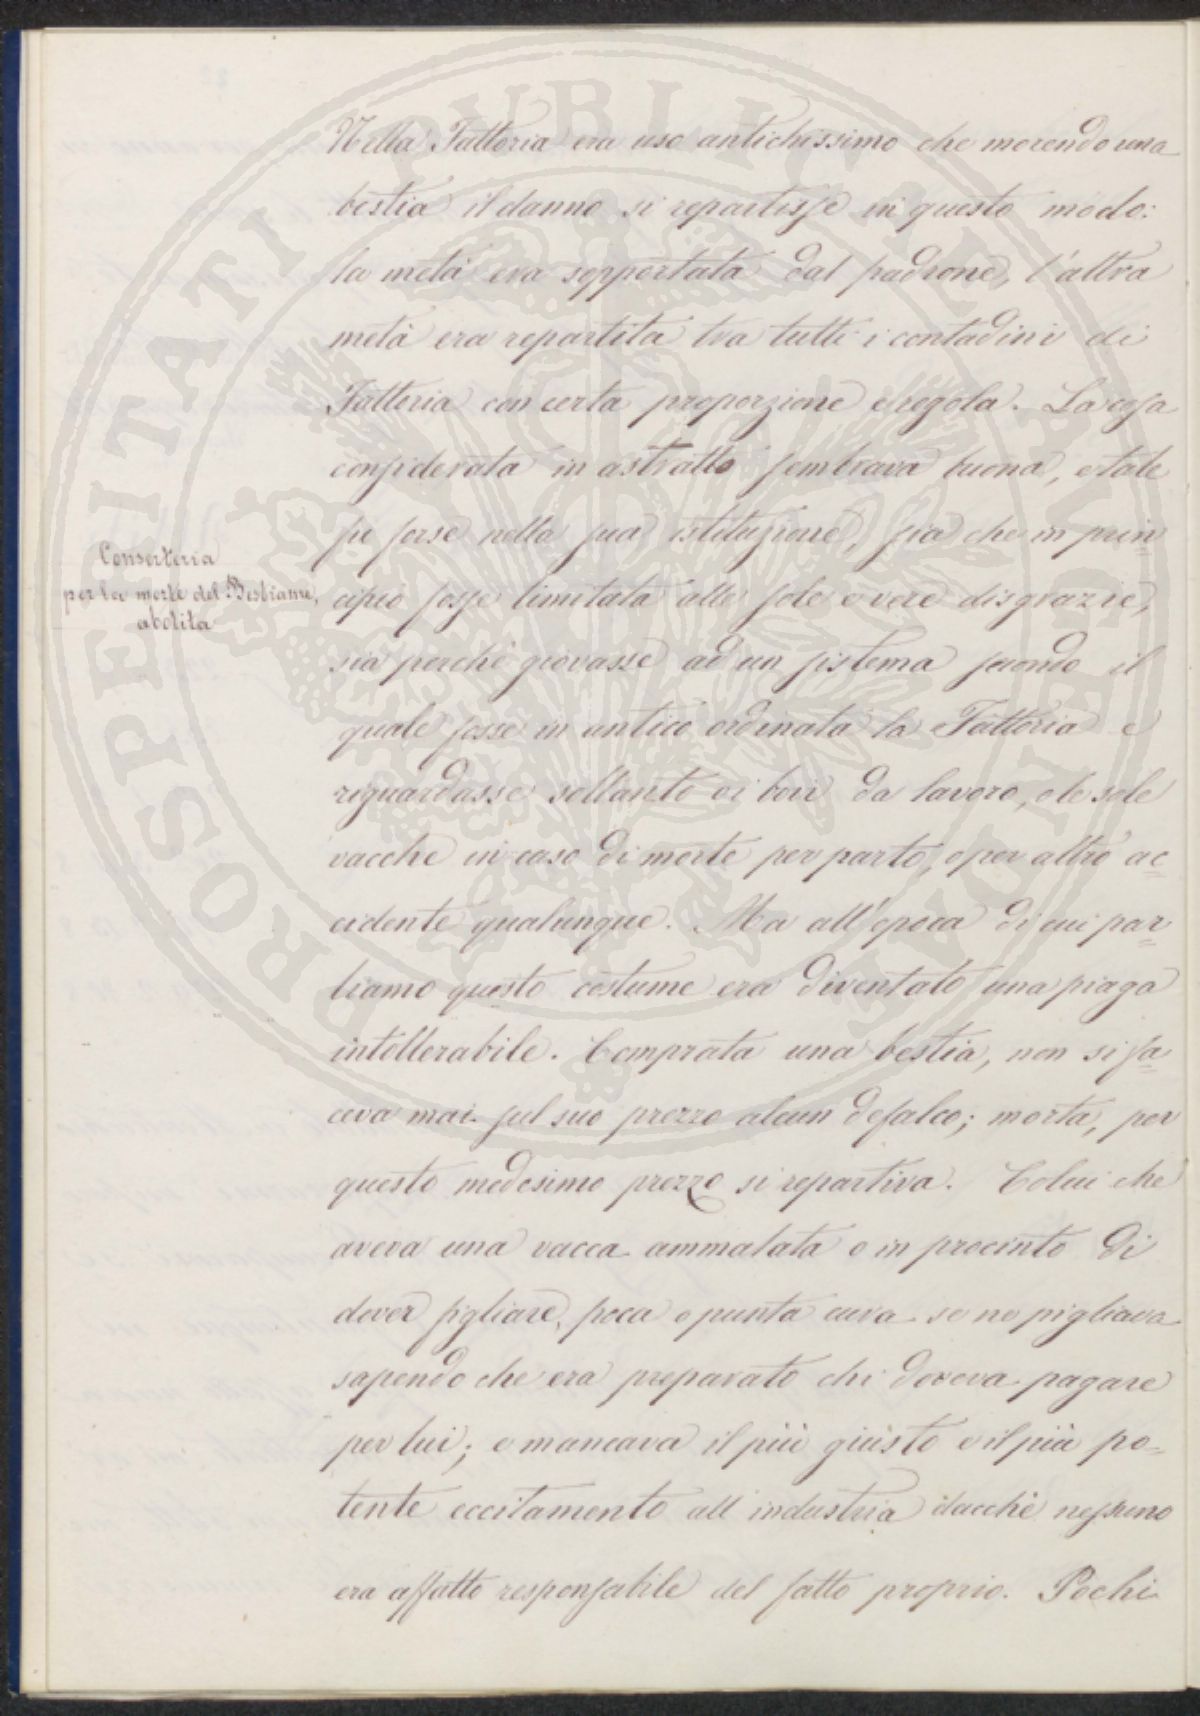 Nella Fattoria era uso antichissimo che morendo una
bestia il danno si repartisse in questo modo:
la metà era sopportata dal padrone, l'altra
metà era repartita tra tutti i contadini di
Fattoria con certa proporzione e regola. La cosa
considerata in astratto sembrava buona, e tale
fu forse nella sua istituzione, sia che in prin
Conserteria
per la morte del Bestiame,
abolita
cipio fosse limitata alle sole e vere disgrazie,
sia perchè giovasse ad un sistema secondo il
quale fosse in antico ordinata la Fattoria e
riguardasse soltanto i bovi da lavoro, o le sole
vacche in caso di morte per parto, o per altro ac
cidente qualunque. Ma all'epoca di cui par
liamo questo costume era diventato una piaga
intollerabile. Comprata una bestia, non si fa
ceva mai sul suo prezzo alcun defalco; morta, per
questo medesimo prezzo si repartiva. Colui che
aveva una vacca ammalata o in procinto di
dover figliare, poca o punta cura se ne pigliava
sapendo che era preparato chi doveva pagare
per lui; e mancava il più giusto e il più po=
tente eccitamento all industria dacchè nessuno
era affatto responsabile del fatto proprio. Pochi